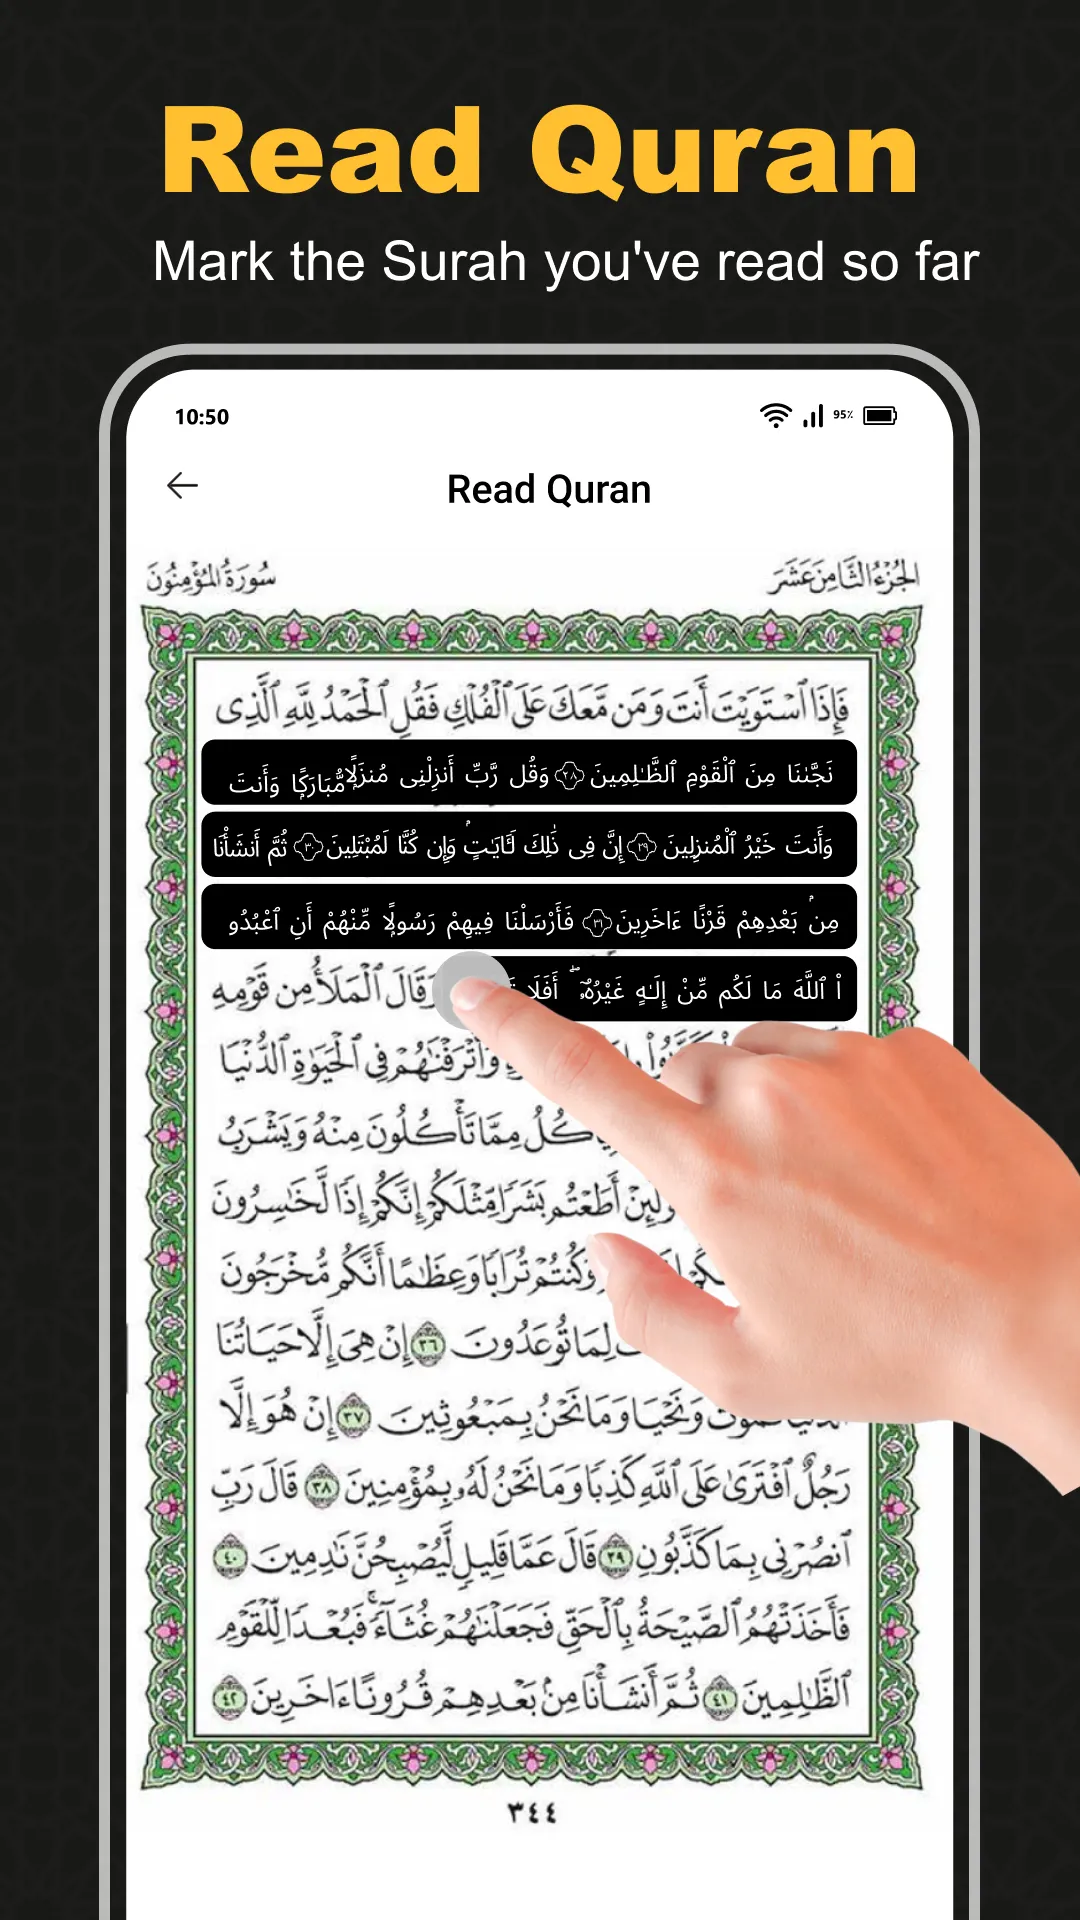 Read Quran
Mark the Surah you've read so far
10:50
95%
Read Quran
الجُزْءُ الثَّامِنَ عَشَرَ
سُورَةُ المُؤْمِنُونَ
فَإِذَا ٱسْتَوَيْتَ أَنتَ وَمَن مَّعَكَ عَلَى ٱلْفُلْكِ فَقُلِ ٱلْحَمْدُ لِلَّهِ ٱلَّذِى
نَجَّىٰنَا مِنَ ٱلْقَوْمِ ٱلظَّـٰلِمِينَ ٢٨ وَقُل رَّبِّ أَنزِلْنِى مُنزَلًا مُّبَارَكًا وَأَنتَ
وَأَنتَ خَيْرُ ٱلْمُنزِلِينَ ٢٩ إِنَّ فِى ذَٰلِكَ لَـَٔايَـٰتٍ وَإِن كُنَّا لَمُبْتَلِينَ ٣٠ ثُمَّ أَنشَأْنَا
مِنۢ بَعْدِهِمْ قَرْنًا ءَاخَرِينَ ٣١ فَأَرْسَلْنَا فِيهِمْ رَسُولًا مِّنْهُمْ أَنِ ٱعْبُدُو
ا۟ ٱللَّهَ مَا لَكُم مِّنْ إِلَـٰهٍ غَيْرُهُۥٓ ۖ أَفَلَا وَقَالَ ٱلْمَلَأُ مِن قَوْمِهِ
وَأَتْرَفْنَـٰهُمْ فِى ٱلْحَيَوٰةِ ٱلدُّنْيَا
يَأْكُلُ مِمَّا تَأْكُلُونَ مِنْهُ وَيَشْرَبُ
وَلَئِنْ أَطَعْتُم بَشَرًا مِّثْلَكُمْ إِنَّكُمْ إِذًا لَّخَـٰسِرُونَ
وَكُنتُمْ تُرَابًا وَعِظَـٰمًا أَنَّكُم مُّخْرَجُونَ
لِمَا تُوعَدُونَ ٣٦ إِنْ هِىَ إِلَّا حَيَاتُنَا
ٱلدُّنْيَا نَمُوتُ وَنَحْيَا وَمَا نَحْنُ بِمَبْعُوثِينَ ٣٧ إِنْ هُوَ إِلَّا
رَجُلٌ ٱفْتَرَىٰ عَلَى ٱللَّهِ كَذِبًا وَمَا نَحْنُ لَهُۥ بِمُؤْمِنِينَ ٣٨ قَالَ رَبِّ
ٱنصُرْنِى بِمَا كَذَّبُونِ ٣٩ قَالَ عَمَّا قَلِيلٍ لَّيُصْبِحُنَّ نَـٰدِمِينَ ٤٠
فَأَخَذَتْهُمُ ٱلصَّيْحَةُ بِٱلْحَقِّ فَجَعَلْنَـٰهُمْ غُثَآءً ۚ فَبُعْدًا لِّلْقَوْمِ
ٱلظَّـٰلِمِينَ ٤١ ثُمَّ أَنشَأْنَا مِنۢ بَعْدِهِمْ قُرُونًا ءَاخَرِينَ ٤٢
٣٤٤